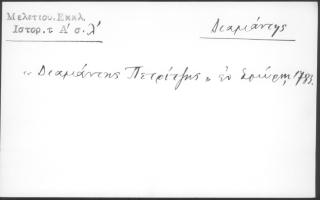 Μελετίου.Εκκλ.
Ιστορ.τ Α' σ.λ'
Διαμάντης
"Διαμάντης Πετρίτζης" ἐν Σμύρνῃ, 1783.